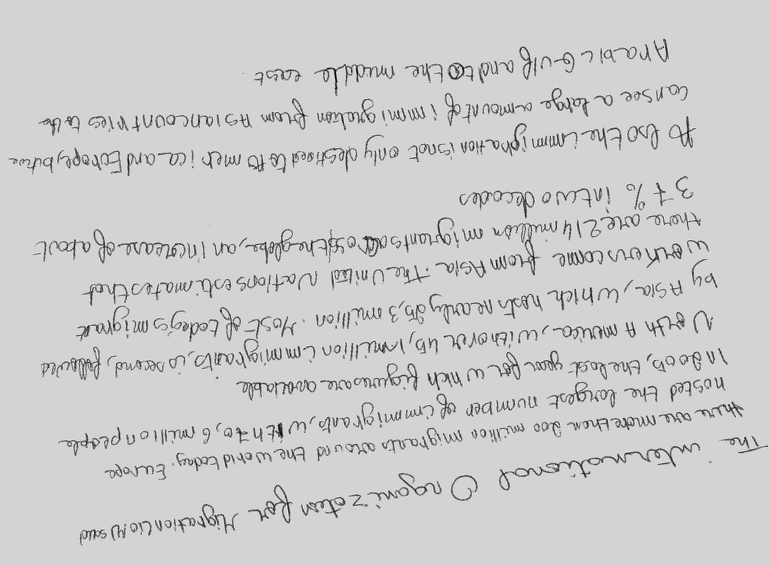 The international Organization for Migration(IOM) said
there are more then 200 million migrants around the world today. Europe
hosted the largest number of immigrants, with 70, 6 million people
In 2005, the last year for which figures are available
North America, with over 45, 1 million immigrants, is second, followed
by Asia, which hosts nearly 25,3 million. Most of today's migrant
workers come from Asia. The United Nations estimates that
there are 214 million migrants across the globe, an increase of about
37 % in two decades
Also the immigration is not only destined to America and Europe, but we
can see a large amount of immigration from Asian countries to the
Arabic Gulf and to the middle east.